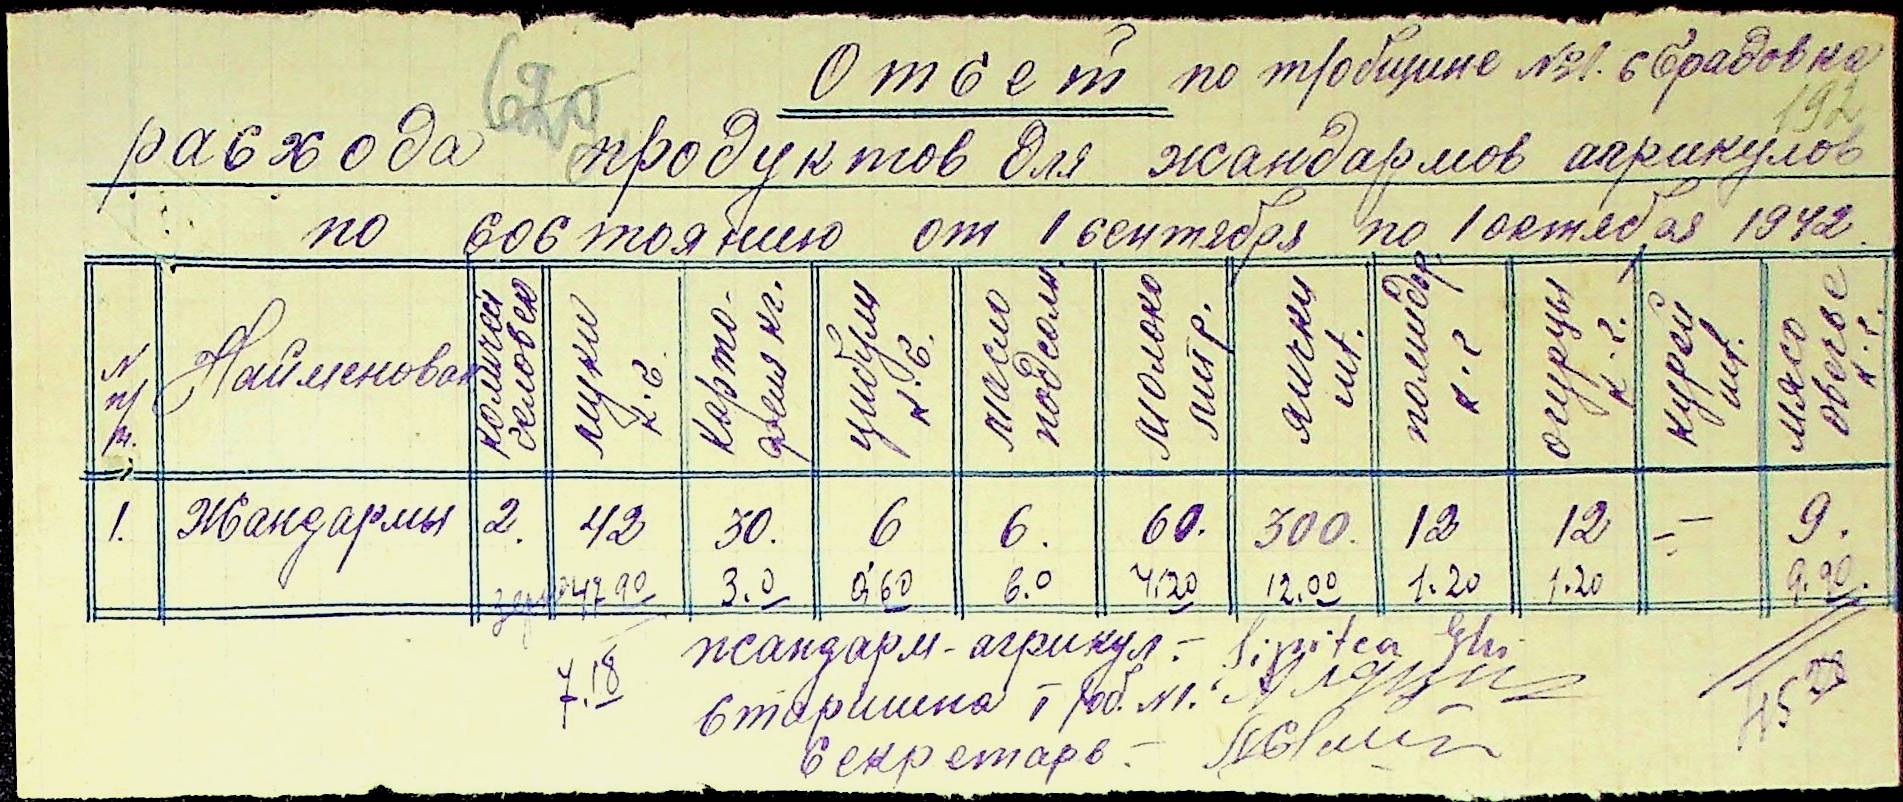 Отсет по тробщине №1. с Градовка
620
192
расхода продуктов для жандармов агрикулов
по состоянию от 1 сентября по 1 октября 1942.
N п/п. Наименован количес человек муки к.г. карто-феля кг. цибули к.г. масло подсолн. молоко литр. яички шт. помидор к.г огурцы к.г. курей шт. мясо овечье к.г.
1. Жандармы 2. 42 30. 6 6. 60. 300. 12 12 — 9.
3.0 0,60 6.0 7.20 12.00 1.20 1.20 9.90.
7.18
жандарм-агрикул. -
старшина Троб. №1.
секретарь -